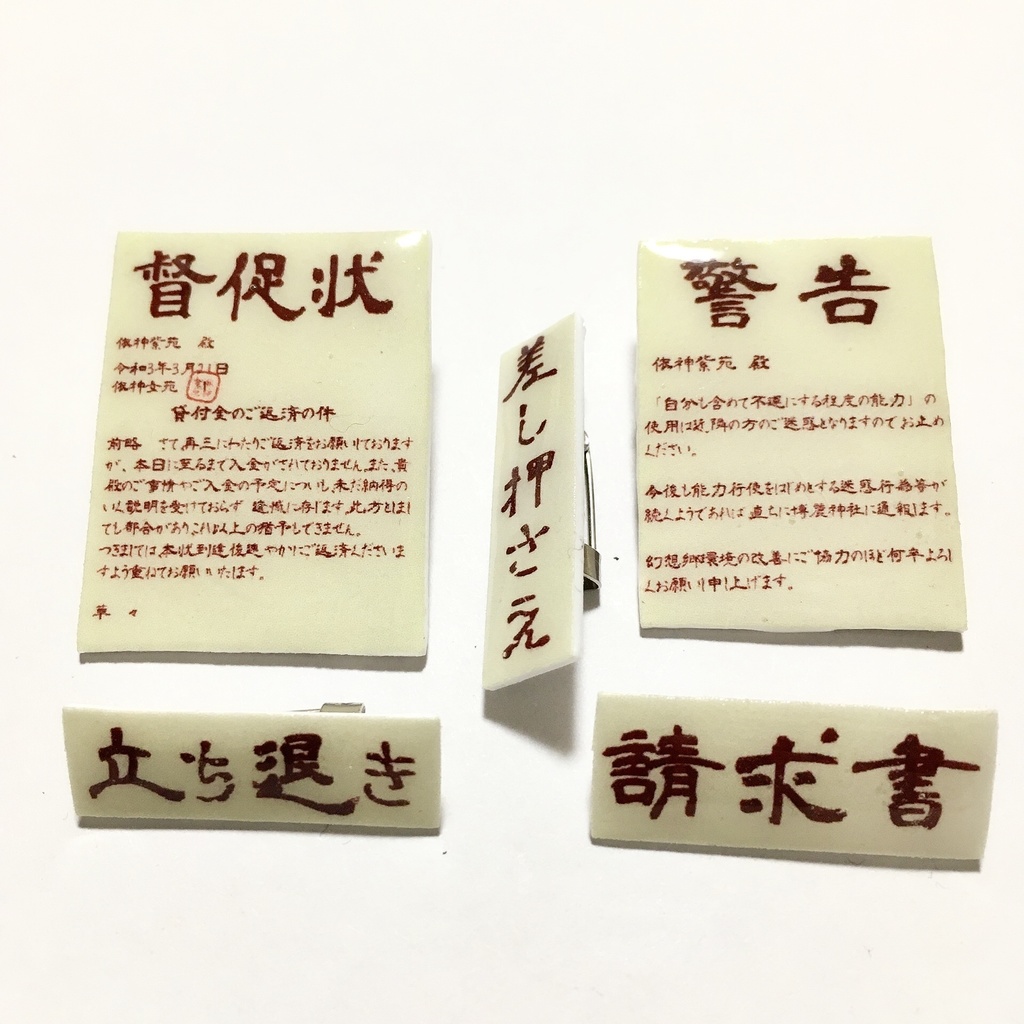 督促状
依神紫苑 殿
令和3年3月21日
依神女苑
貸付金のご返済の件
前略 さて、再三にわたりご返済をお願いしております
が、本日に至るまで入金がされておりません。また、貴
殿のご事情やご入金の予定についても、未だ納得の
いく説明を受けておらず 遺憾に存じます。此方としま
しても都合があり、これ以上の猶予もできません。
つきましては、本状到達後速やかにご返済くださいま
すよう重ねてお願いいたします。
草々
差し押さえ
警告
依神紫苑 殿
「自分も含めて不運にする程度の能力」の
使用は近隣の方のご迷惑となりますのでお止め
ください。
今後も能力行使をはじめとする迷惑行為等が
続くようであれば 直ちに博麗神社に通報します。
幻想郷環境の改善にご協力のほど何卒よろし
くお願い申し上げます。
立ち退き
請求書